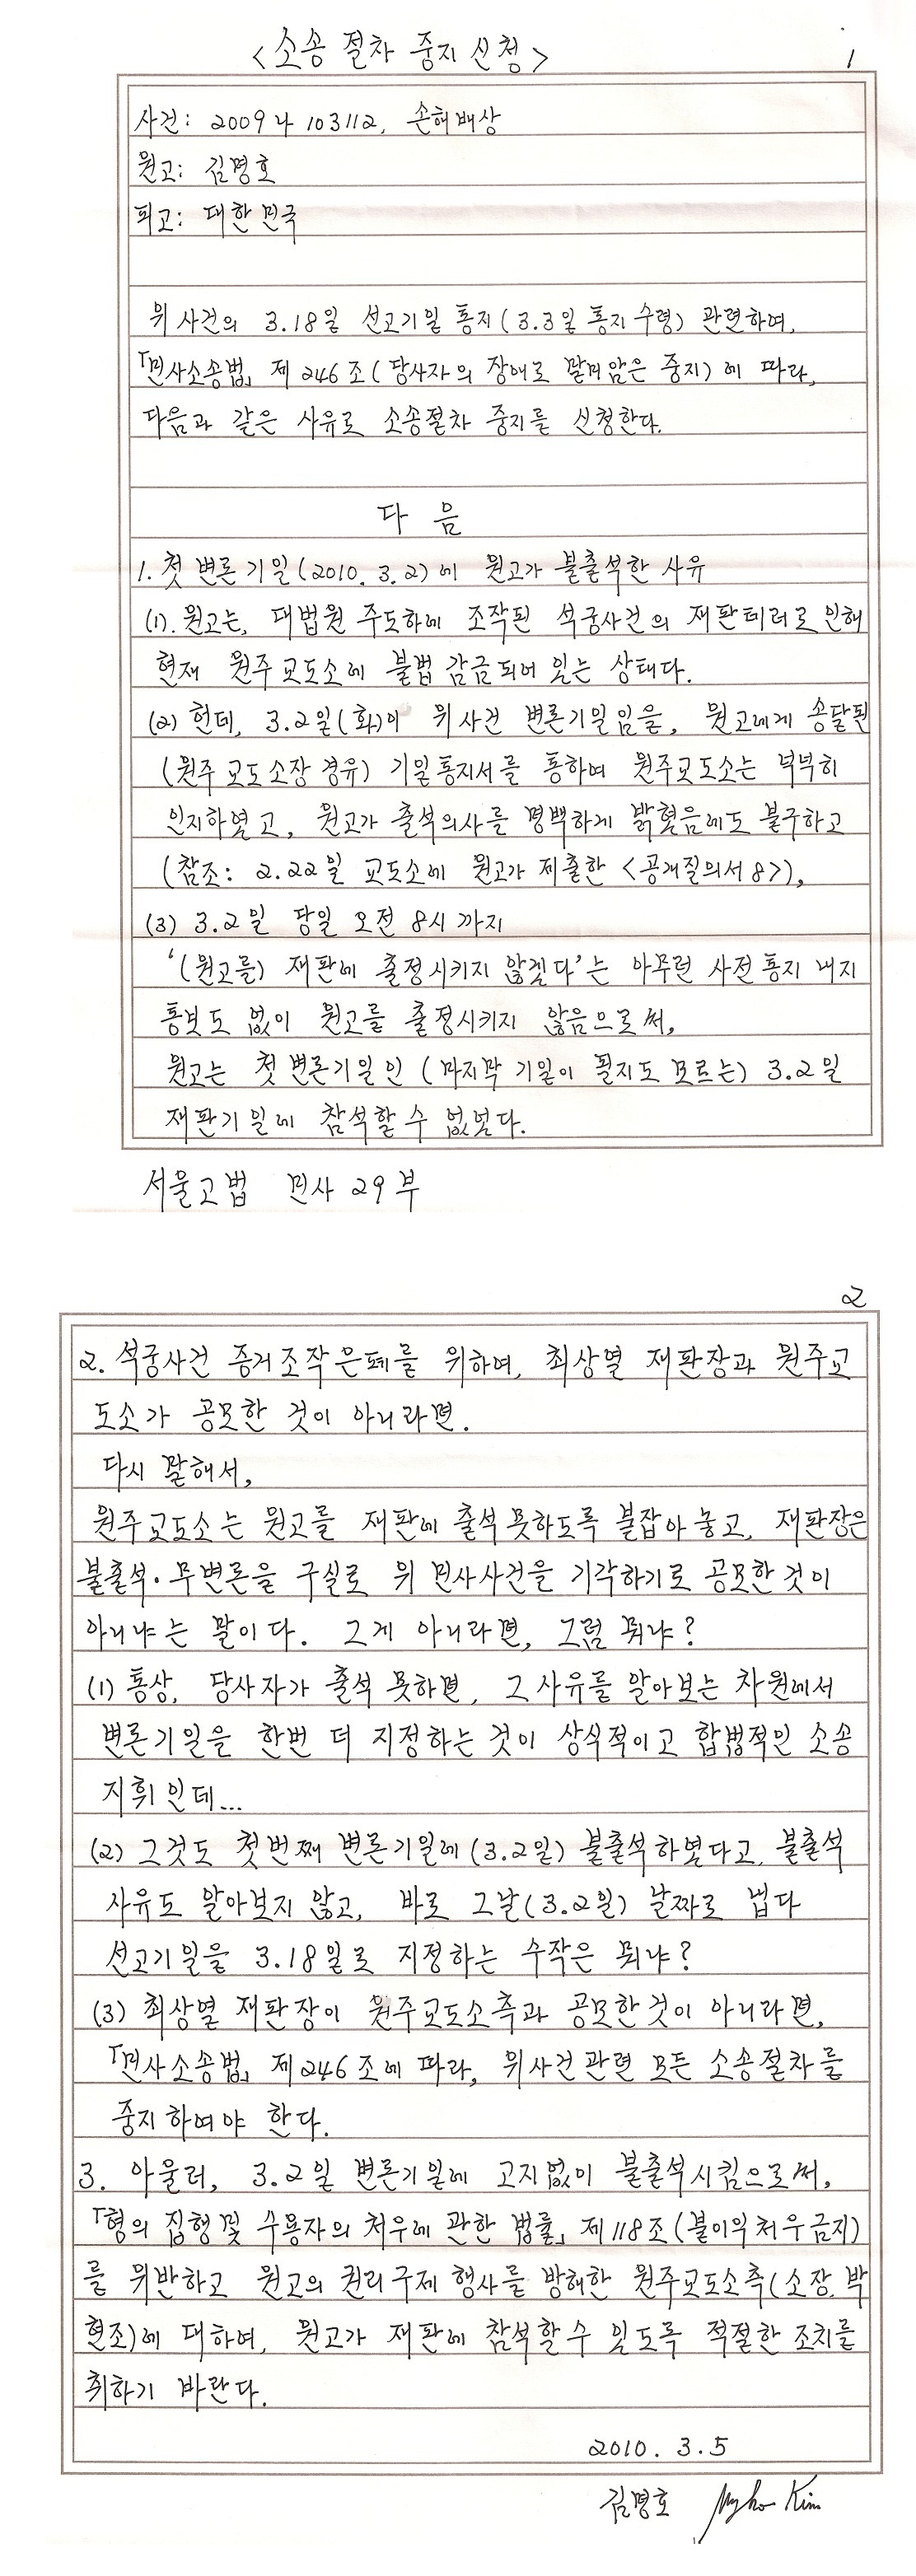 <소송 절차 중지 신청>
1
사건: 2009나 103112, 손해배상
원고: 김명호
피고: 대한민국
위 사건의 3.18일 선고기일 통지(3.3일 통지 수령) 관련하여,
「민사소송법」 제246조(당사자의 장애로 말미암은 중지)에 따라,
다음과 같은 사유로 소송절차 중지를 신청한다.
다 음
1. 첫 변론기일(2010. 3. 2)에 원고가 불출석한 사유
(1). 원고는, 대법원 주도하에 조작된 석궁사건의 재판테러로 인해
현재 원주교도소에 불법 감금되어 있는 상태다.
(2) 헌데, 3.2일(화)이 위 사건 변론기일임을, 원고에게 송달된
(원주교도소장 경유) 기일통지서를 통하여 원주교도소는 넉넉히
인지하였고, 원고가 출석의사를 명백하게 밝혔음에도 불구하고
(참조: 2.22일 교도소에 원고가 제출한 <공개질의서 8>),
(3) 3.2일 당일 오전 8시 까지
'(원고를) 재판에 출정시키지 않겠다'는 아무런 사전 통지 내지
통보도 없이 원고를 출정시키지 않음으로써,
원고는 첫 변론기일인 (마지막 기일이 될지도 모르는) 3.2일
재판기일에 참석할 수 없었다.
서울고법 민사 29부
2
2. 석궁사건 증거조작 은폐를 위하여, 최상열 재판장과 원주교
도소가 공모한 것이 아니라면.
다시 말해서,
원주교도소는 원고를 재판에 출석 못하도록 붙잡아 놓고, 재판장은
불출석·무변론을 구실로 위 민사사건을 기각하기로 공모한 것이
아니냐는 말이다. 그게 아니라면, 그럼 뭐냐?
(1) 통상, 당사자가 출석 못하면, 그 사유를 알아보는 차원에서
변론기일을 한번 더 지정하는 것이 상식적이고 합법적인 소송
지휘인데...
(2) 그것도 첫번째 변론기일에(3.2일) 불출석하였다고, 불출석
사유도 알아보지 않고, 바로 그날(3.2일) 날짜로 냅다
선고기일을 3.18일로 지정하는 수작은 뭐냐?
(3) 최상열 재판장이 원주교도소측과 공모한 것이 아니라면,
「민사소송법」 제246조에 따라, 위사건관련 모든 소송절차를
중지하여야 한다.
3. 아울러, 3.2일 변론기일에 고지없이 불출석시킴으로써,
「형의 집행 및 수용자의 처우에 관한 법률」 제118조(불이익처우금지)
를 위반하고 원고의 권리구제 행사를 방해한 원주교도소측(소장, 박
현조)에 대하여, 원고가 재판에 참석할 수 있도록 적절한 조치를
취하기 바란다.
2010. 3. 5
김명호 Myho Kim